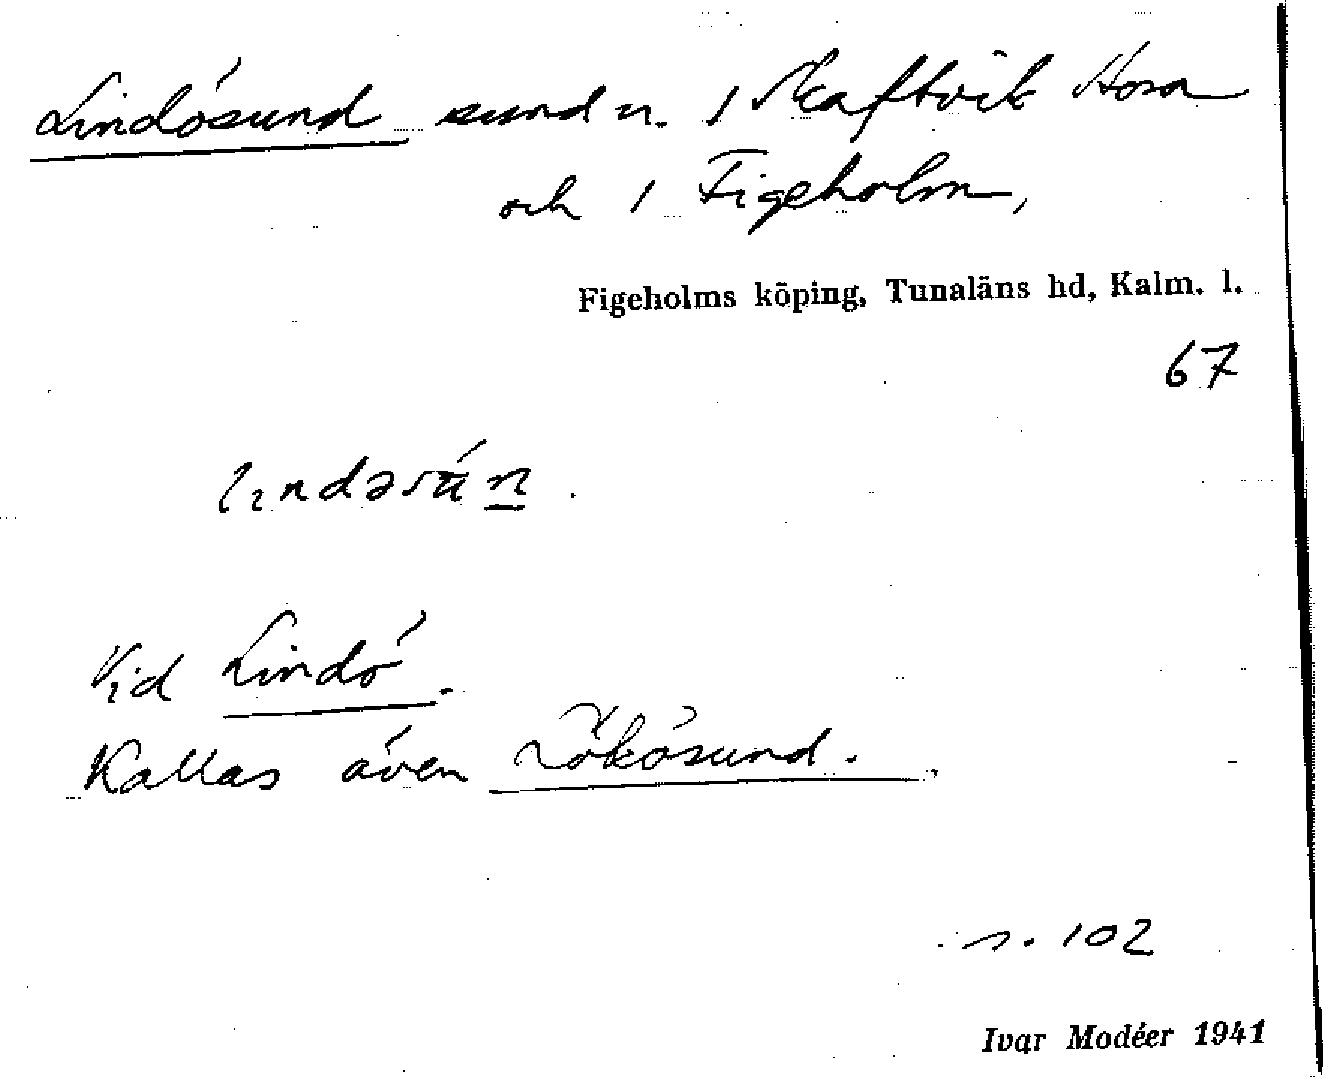 Lindösund sund n. 1 Skaftvik Hosa
och 1 Figeholm,
Figeholms köping, Tunaläns hd, Kalm. l.
67
Vid Lindö.
Kallas även Lökösund.
s. 102
Ivar Modéer 1941